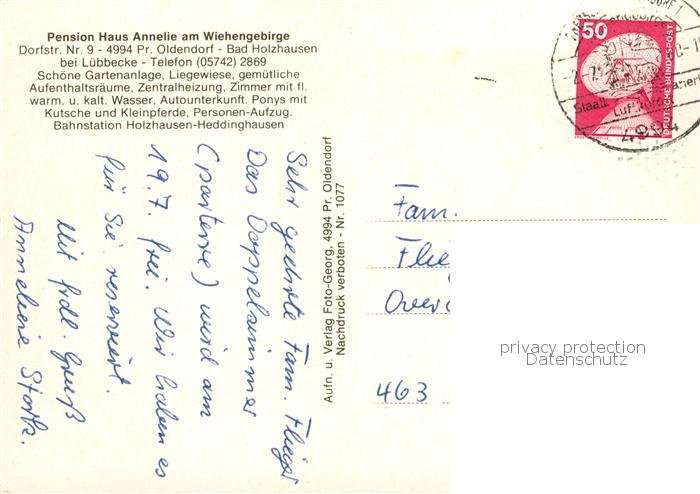 Pension Haus Annelie am Wiehengebirge
Dorfstr. Nr. 9 - 4994 Pr. Oldendorf - Bad Holzhausen
bei Lübbecke - Telefon (05742) 2869
Schöne Gartenanlage, Liegewiese, gemütliche
Aufenthaltsräume, Zentralheizung, Zimmer mit fl.
warm. u. kalt. Wasser, Autounterkunft. Ponys mit
Kutsche und Kleinpferde, Personen-Aufzug.
Bahnstation Holzhausen-Heddinghausen
Sehr geehrte Fam. Flieger
Das Doppelzimmer
(parterre) wird am
19.7. frei. Wir haben es
für Sie reserviert.
Mit frdl. Gruß
Anneliese Stork.
Aufn. u. Verlag Foto-Georg, 4994 Pr. Oldendorf
Nachdruck verboten - Nr. 1077
50
DEUTSCHE BUNDESPOST
Staatl. Luftkurort
4994
Fam.
Flie
Over
463
privacy protection
Datenschutz